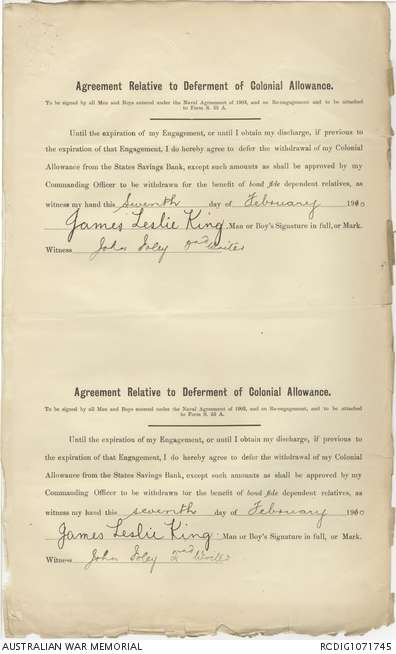 Agreement Relative to Deferment of Colonial Allowance.
To be signed by all Men and Boys entered under the Naval Agreement of 1903, and on Re-engagement and to be attached
to Form S. 55 A.
Until the expiration of my Engagement, or until I obtain my discharge, if previous to
the expiration of that Engagement, I do hereby agree to defer the withdrawal of my Colonial
Allowance from the States Savings Bank, except such amounts as shall be approved by my
Commanding Officer to be withdrawn for the benefit of bonâ fide dependent relatives, as
witness my hand this Seventh day of February 1910
James Leslie King. Man or Boy's Signature in full, or Mark.
Witness John Foley 2nd Writer
Agreement Relative to Deferment of Colonial Allowance.
To be signed by all Men and Boys entered under the Naval Agreement of 1903, and on Re-engagement, and to be attached
to Form S. 55 A.
Until the expiration of my Engagement, or until I obtain my discharge, if previous to
the expiration of that Engagement, I do hereby agree to defer the withdrawal of my Colonial
Allowance from the States Savings Bank, except such amounts as shall be approved by my
Commanding Officer to be withdrawn for the benefit of bonâ fide dependent relatives, as
witness my hand this seventh day of February 1910
James Leslie King. Man or Boy's Signature in full, or Mark.
Witness John Foley 2nd Writer
AUSTRALIAN WAR MEMORIAL RCDIG1071745